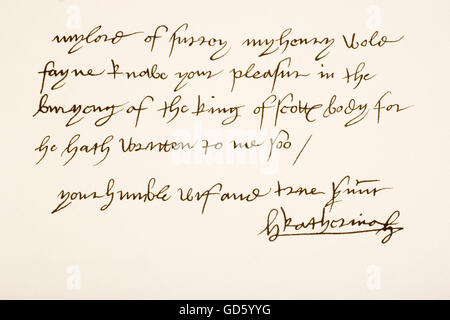 mylord of surrey myhenry wold
fayne knowe your pleasur in the
buryeng of the king of scottꝭ body for
he hath written to me soo /
your humble wif and true
katherina
alamy
GD5YYG